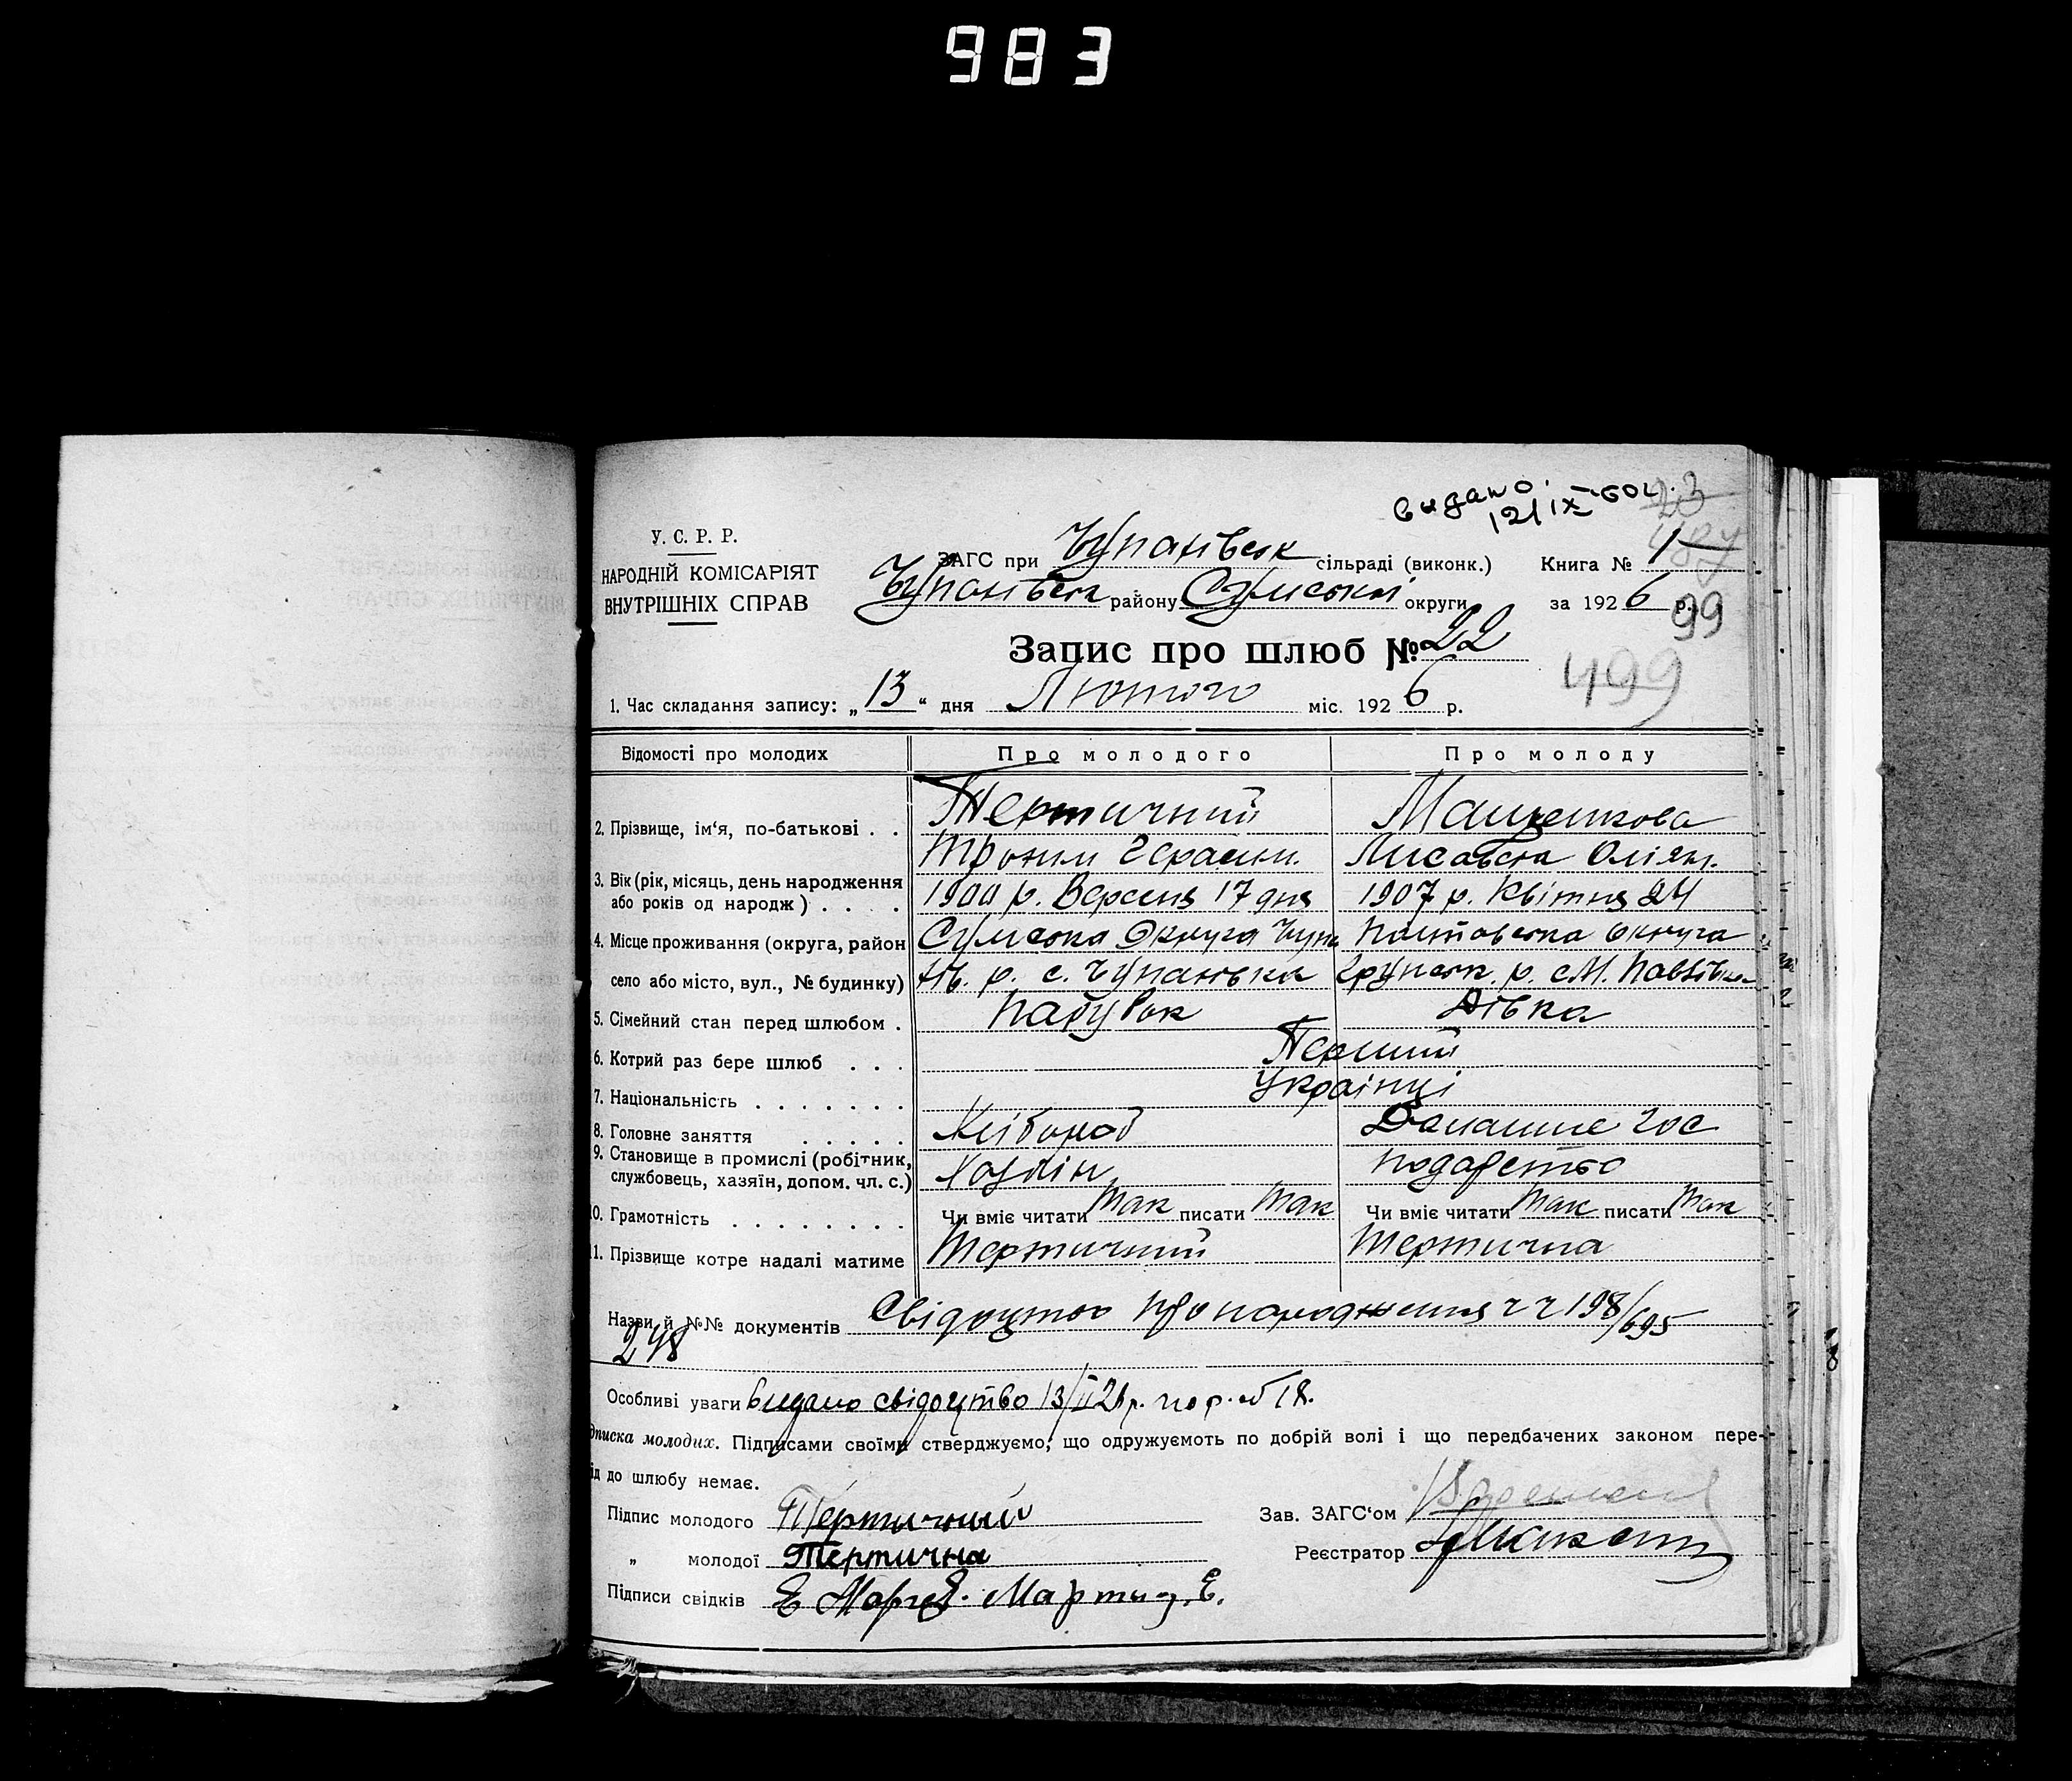 983
видано.
12/IX-60
У. С. Р. Р.
НАРОДНІЙ КОМІСАРІЯТ
ВНУТРІШНІХ СПРАВ
ЗАГС при Чупахівськ сільраді (виконк.) Книга № 1
Чупахівськ району Сумської округи за 1926 р.
99
Запис про шлюб № 22
499
1. Час складання запису: „13“ дня Лютого міс. 1926 р.
Відомості про молодих Про молодого Про молоду
2. Прізвище, ім'я, по-батькові . . Тертичний
Трохим Герасим. Лисавета
3. Вік (рік, місяць, день народження або років од народж) . . . . 1900 р. Вересня 17 дня 1907 р. Квітня 24
4. Місце проживання (округа, район Сумська Округа Чупа Полтавська округа
село або місто, вул., № будинку) хів. р. с. Чупахівка Грунськ. р.
5. Сімейний стан перед шлюбом . Парубок Дівка
6. Котрий раз бере шлюб . . . Перший
7. Національність . . . . . . . Українці
8. Головне заняття . . . . . Хлібороб Домашнє гос
9. Становище в промислі (робітник, службовець, хазяїн, допом. чл. с.) Хазяїн подарство
10. Грамотність . . . . . . . . Чи вміє читати так писати так Чи вміє читати так писати так
11. Прізвище котре надалі матиме Тертичний Тертична
Назви й №№ документів Свідоцтво про народження ч ч 198/695
248
Особливі уваги видано свідоцтво 13/II 26 р. по р. № 18.
дписка молодих. Підписами своїми стверджуємо, що одружуємоть по добрій волі і що передбачених законом пере-
ід до шлюбу немає.
Підпис молодого Тертичний Зав. ЗАГС'ом
„ молодої Тертична Реєстратор
Підписи свідків